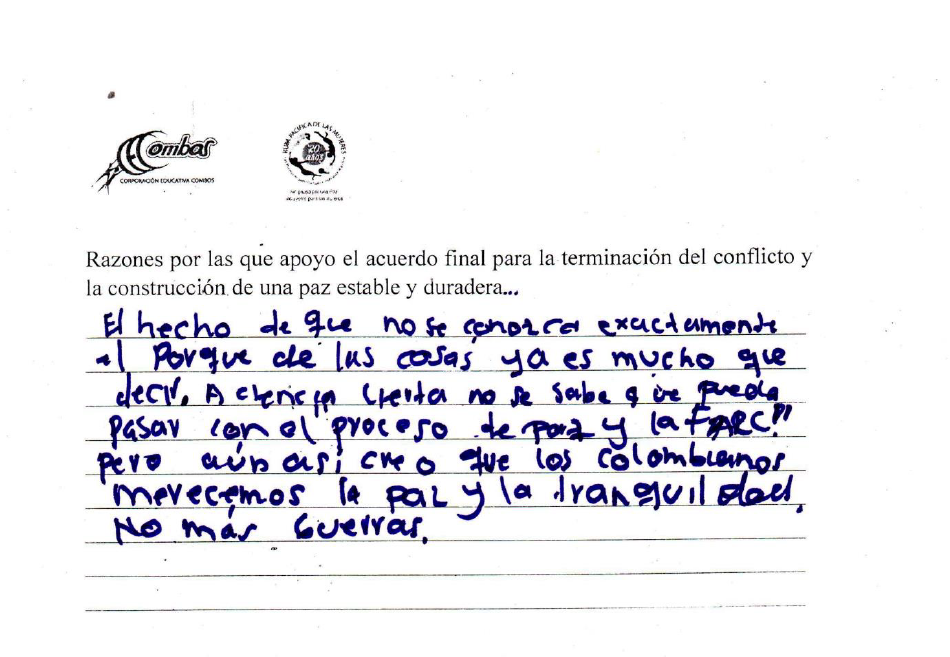 Combos
CORPORACIÓN EDUCATIVA COMBOS
RUTA PACÍFICA DE LAS MUJERES
20
años
Razones por las que apoyo el acuerdo final para la terminación del conflicto y
la construcción de una paz estable y duradera...
El hecho de que no se conozca exactamente
el Porque de las cosas ya es mucho que
decir. A ciencia cierta no se sabe que pueda
pasar con el proceso de paz y la FARC"
pero aún así creo que los colombianos
merecemos la paz y la tranquilidad.
No más Guerras.